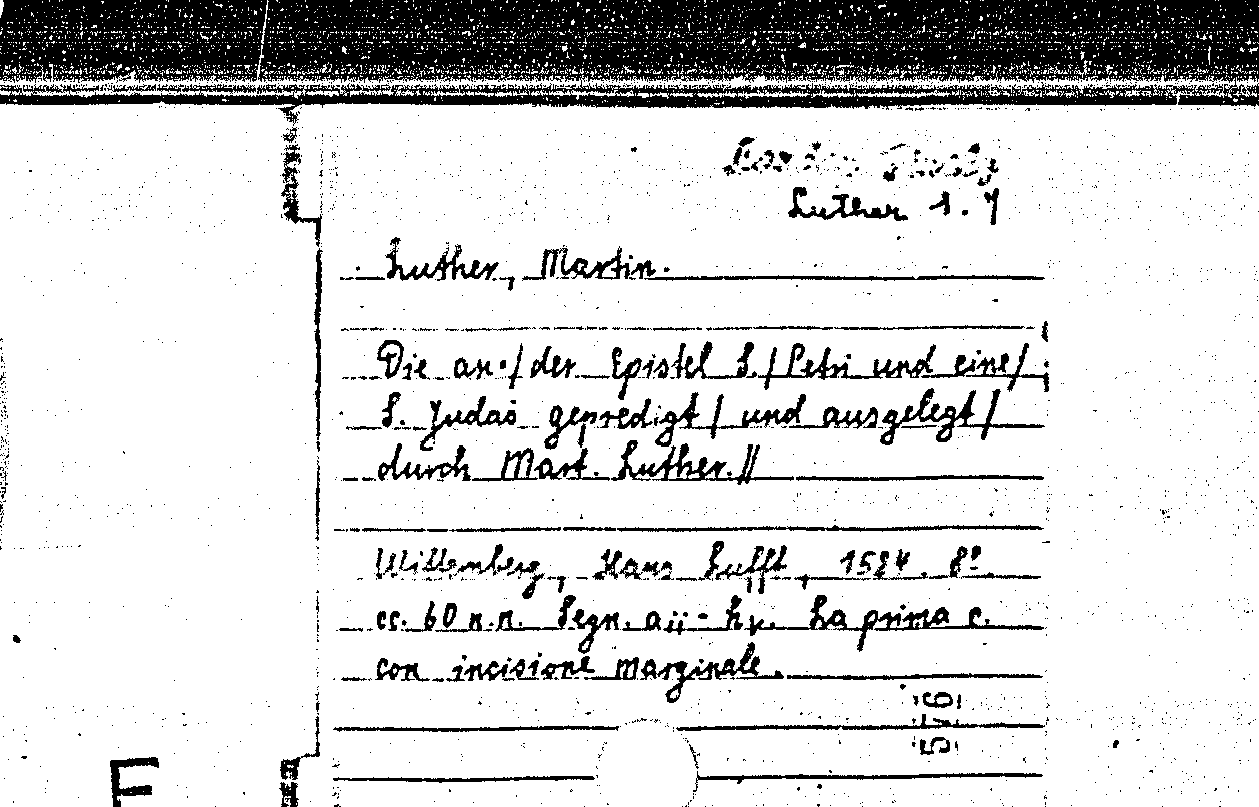 Luther 1.7
Luther, Martin.
Die an-/der Epistel S./Petri und eine/
S. Judas gepredigt/ und ausgelegt/
durch Mart. Luther.//
Wittemberg, Hans Lufft, 1524. 8°
cc. 60 n.n. Segn. aii - hv. La prima c.
con incisione marginale.
576
E